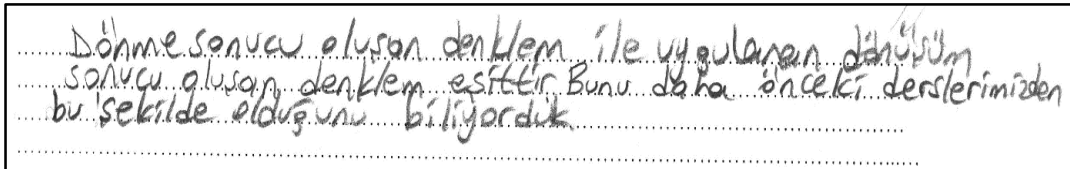 Dönme sonucu oluşan denklem ile uygulanan dönüşüm
sonucu oluşan denklem eşittir. Bunu daha önceki derslerimizden
bu şekilde olduğunu biliyorduk.